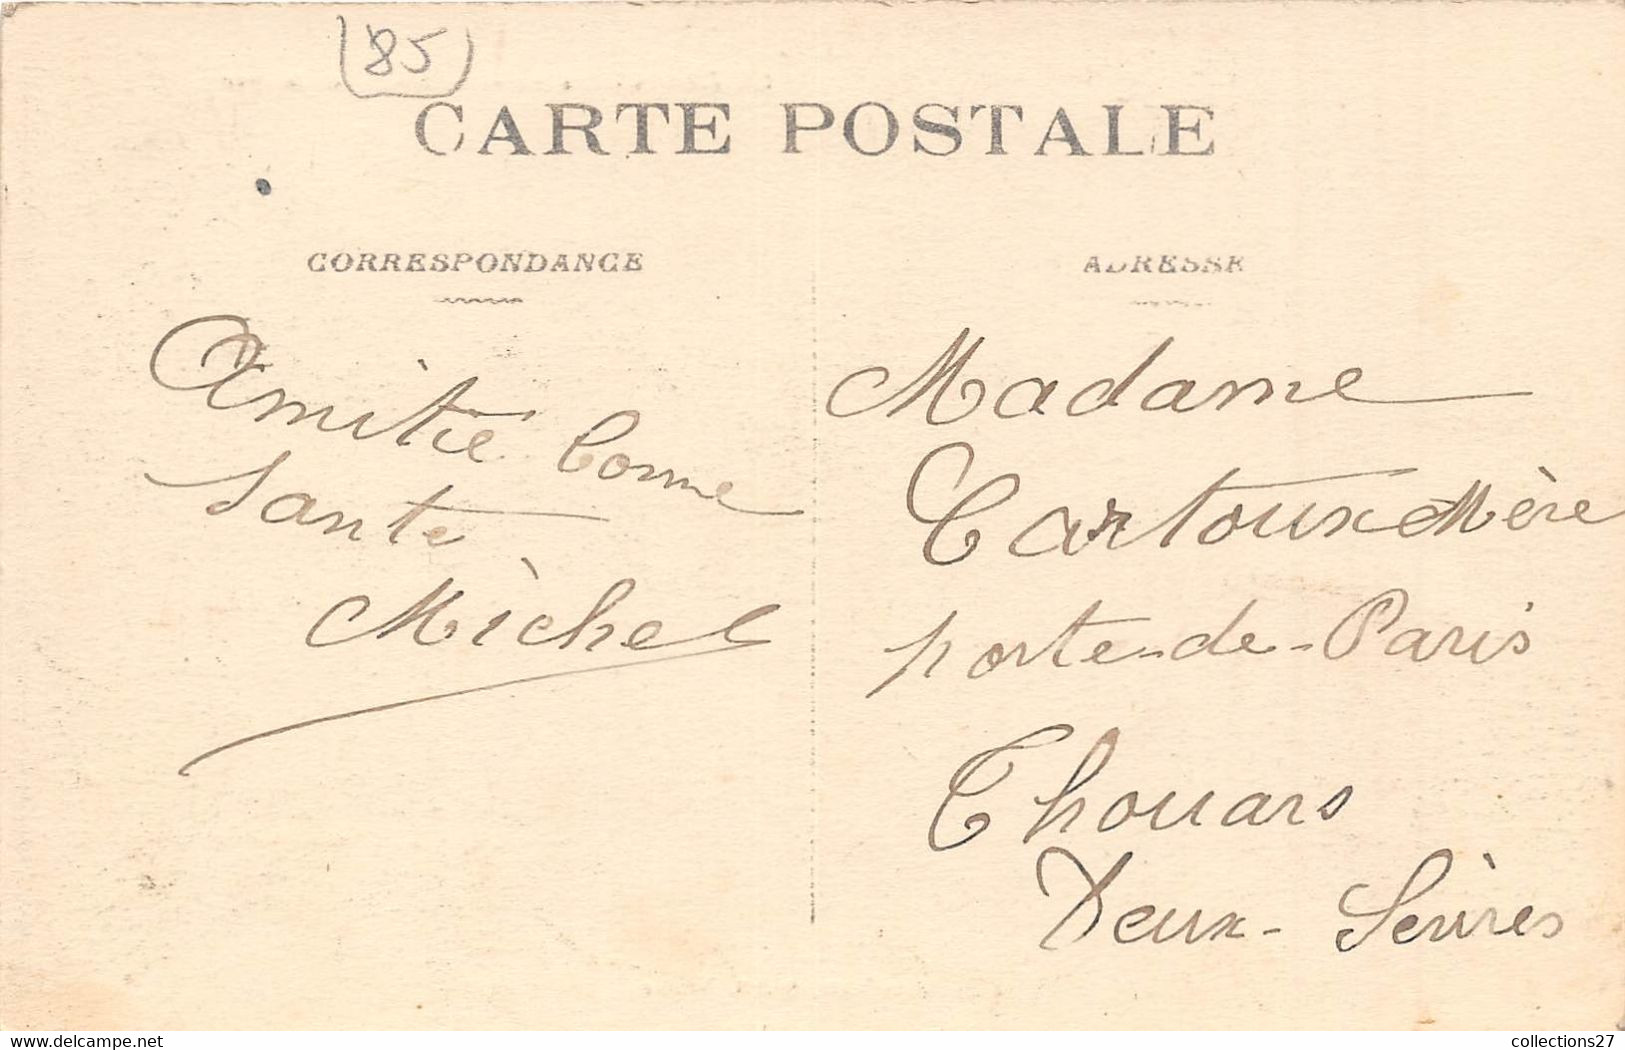 (85)
CARTE POSTALE
CORRESPONDANCE
Amitié bonne
santé
Michel
ADRESSE
Madame
Cartoux Mère
porte-de-Paris
Thouars
Deux-Sèvres
www.delcampe.net
collections27